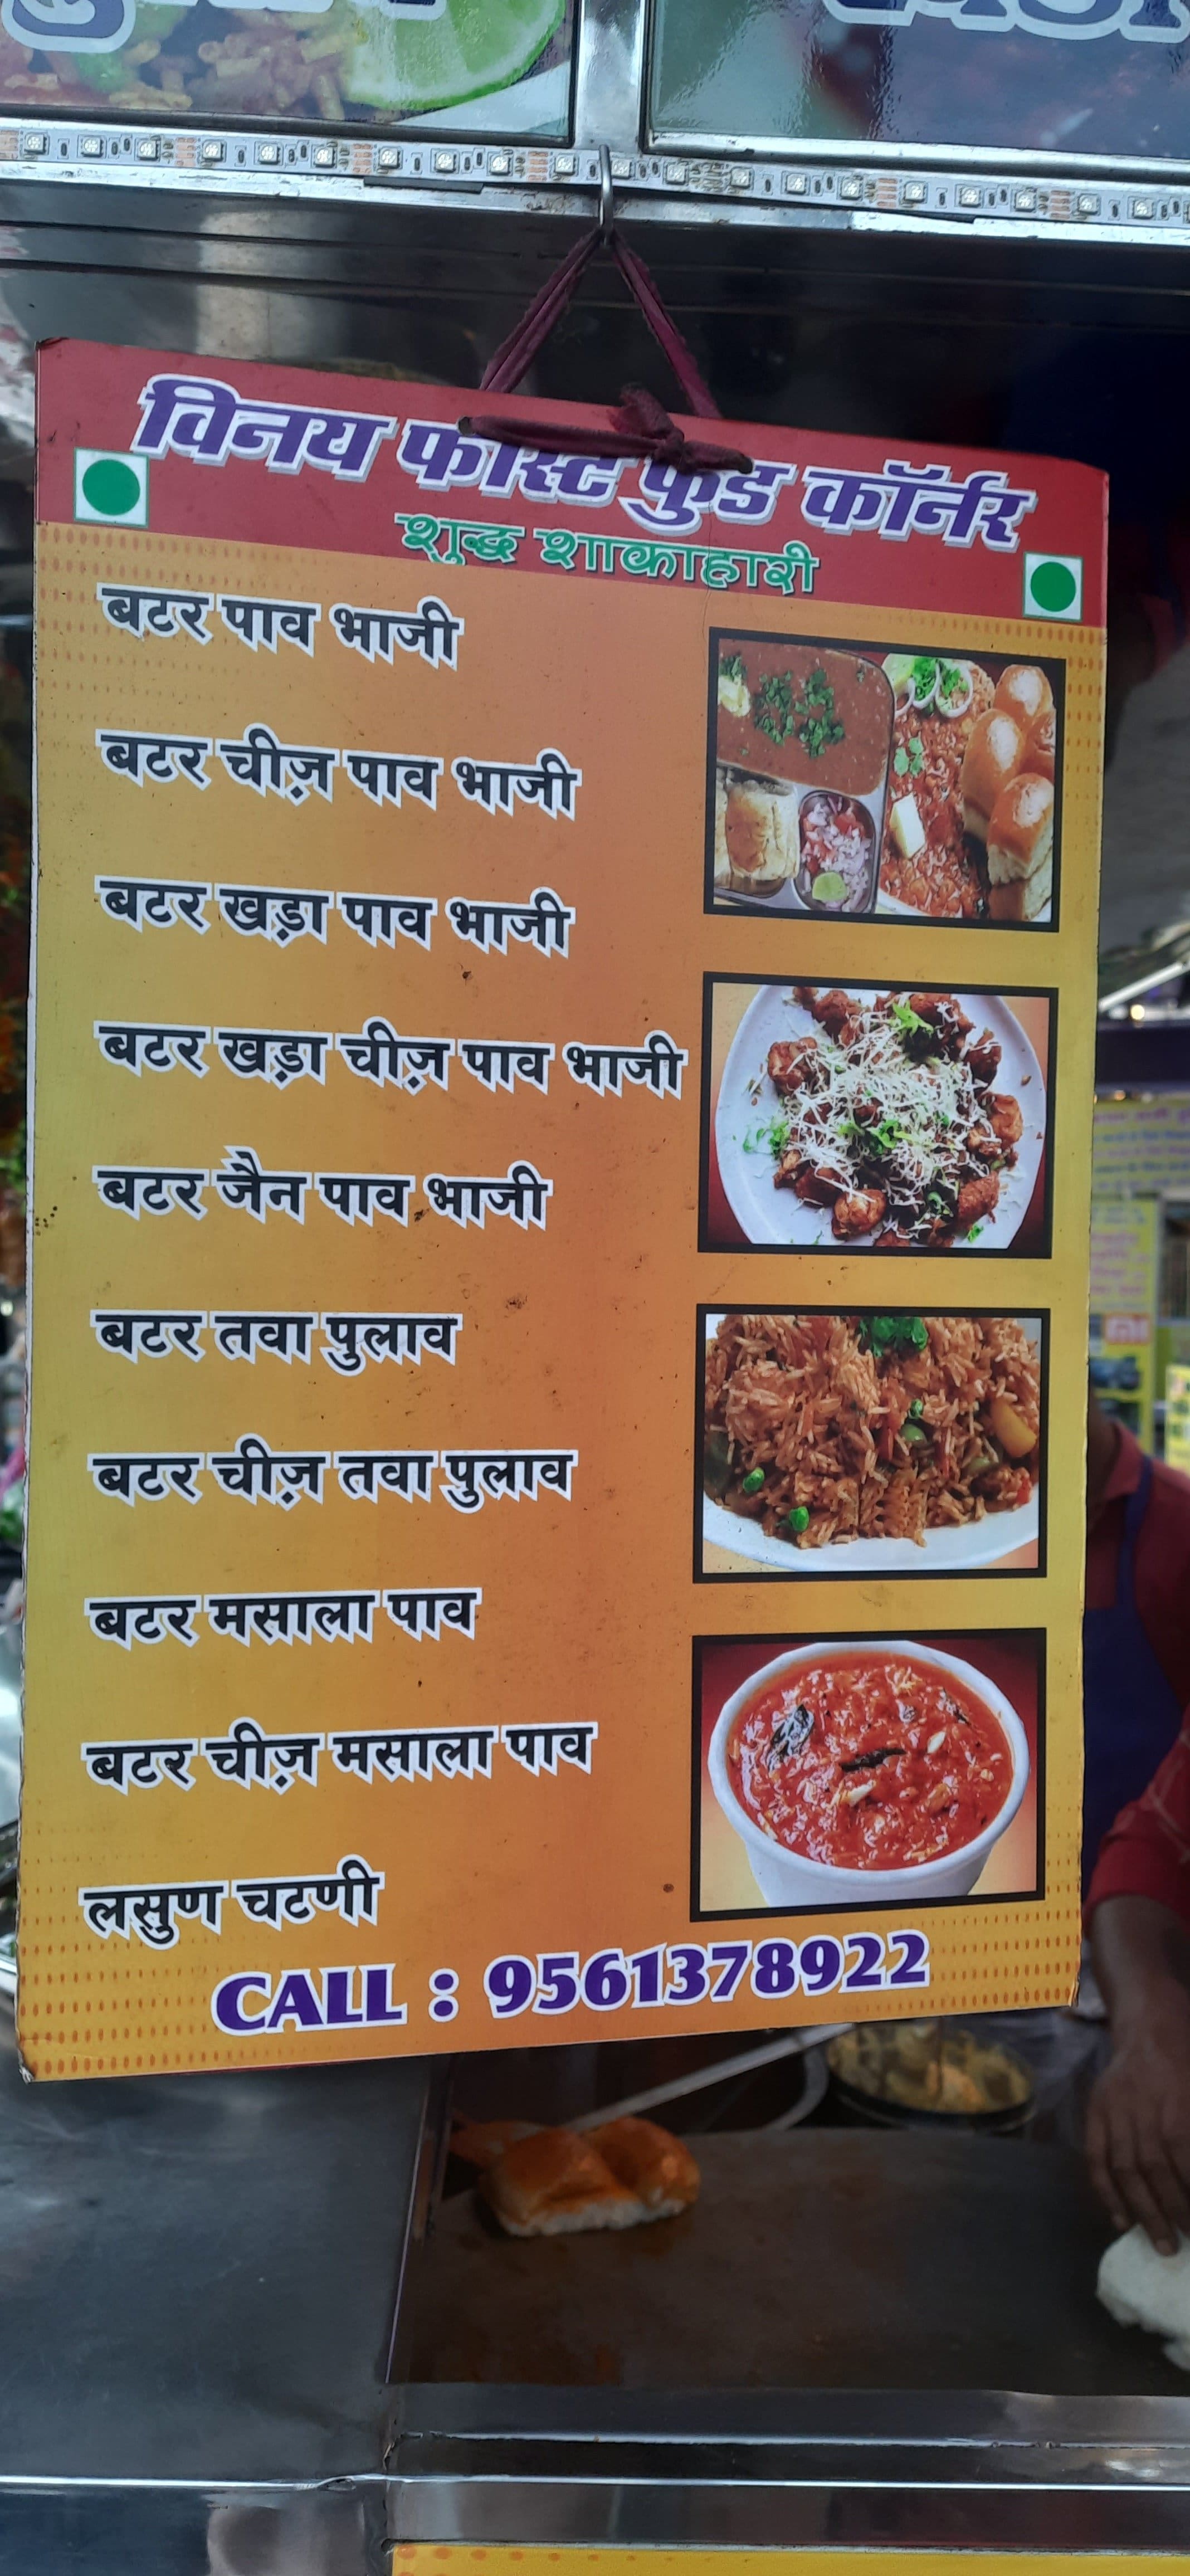 विनय फास्ट फुड कॉर्नर
शुद्ध शाकाहारी
बटर पाव भाजी
बटर चीज़ पाव भाजी
बटर खड़ा पाव भाजी
बटर खड़ा चीज़ पाव भाजी
बटर जैन पाव भाजी
बटर तवा पुलाव
बटर चीज़ तवा पुलाव
बटर मसाला पाव
बटर चीज़ मसाला पाव
लसुण चटणी
CALL : 9561378922